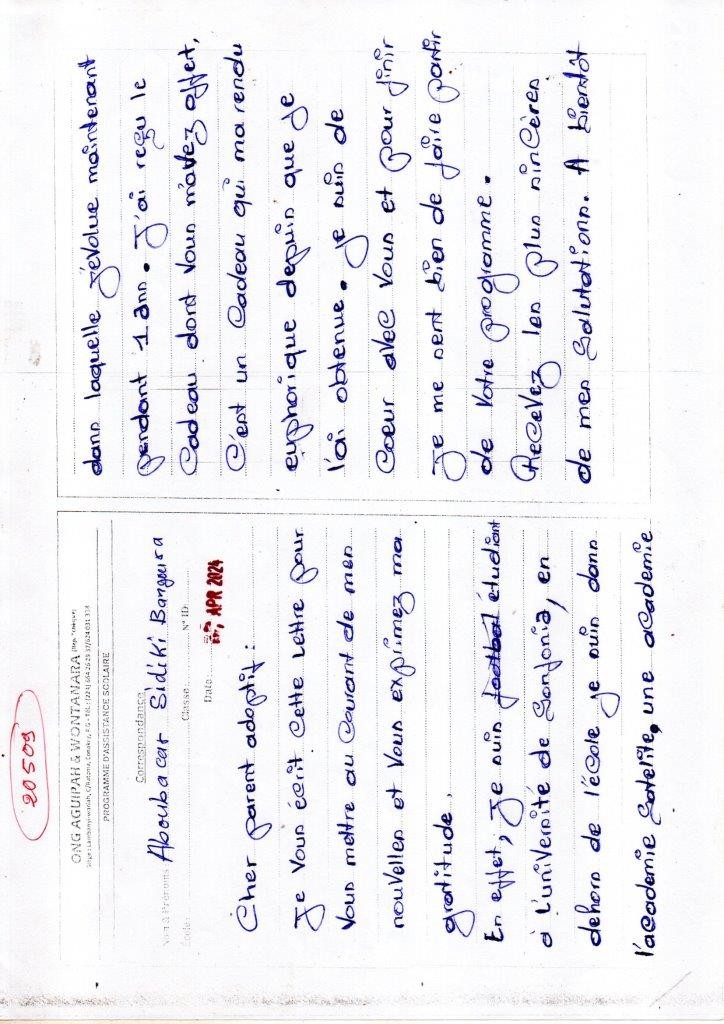 20509
ONG AGUIPAH & WONTANARA
PROGRAMME D'ASSISTANCE SCOLAIRE
Correspondance
Nom & Prénoms Aboubacar Sidiki Bangoura
École: Classe: N° ID:
Date: APR 2024
Cher parent adoptif :
Je vous écrit cette lettre pour
vous mettre au courant de mes
nouvelles et vous exprimez ma
gratitude.
En effet, je suis football étudiant
à l'université de Sonfonia, en
dehors de l'école je suis dans
l'académie Satelite, une academie
dans laquelle j'évolue maintenant
pendant 1 ans. J'ai reçu le
cadeau dont vous m'avez offert,
C'est un cadeau qui ma rendu
euphorique depuis que je
l'ai obtenue. je suis de
coeur avec vous et pour finir
Je me sent bien de faire partir
de votre programme.
Recevez les plus sincères
de mes salutations. A bientôt